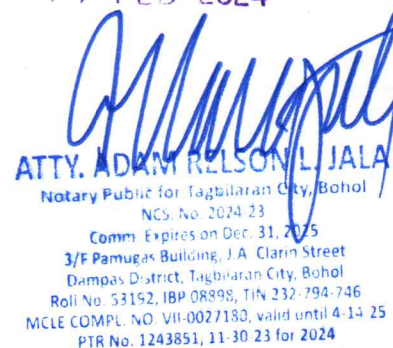 FEB 2024
ATTY. ADAM RELSON L. JALA
Notary Public for Tagbilaran City, Bohol
NCS. No. 2024-23
Comm. Expires on Dec. 31, 2025
3/F Pamugas Building, J.A. Clarin Street
Dampas District, Tagbilaran City, Bohol
Roll No. 53192, IBP 08898, TIN 232-794-746
MCLE COMPL. NO. VII-0027180, valid until 4-14-25
PTR No. 1243851, 11-30-23 for 2024